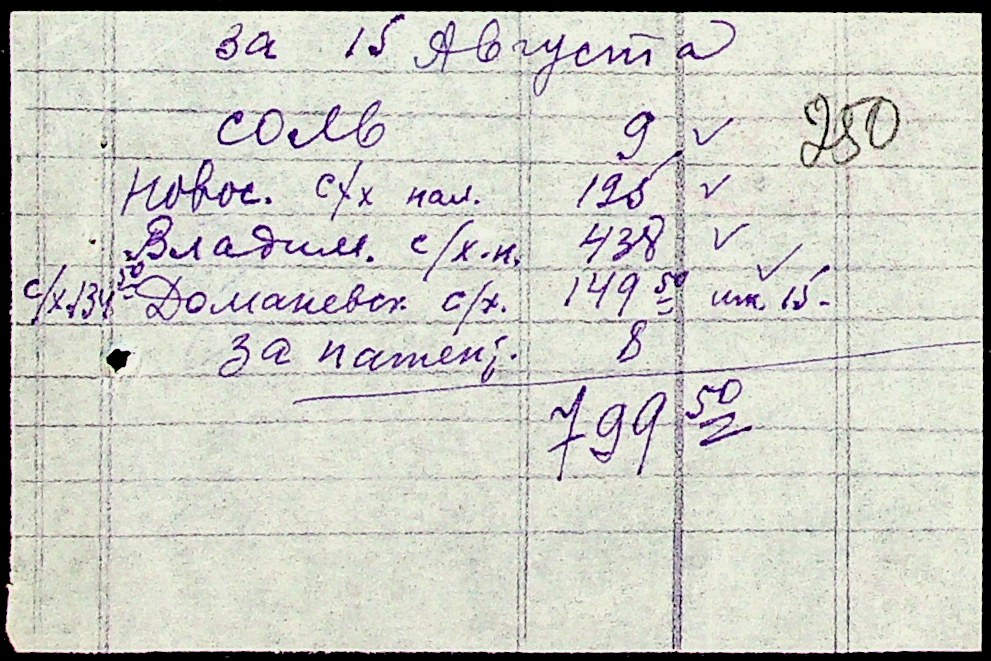 за 15 Августа
250
соль 9 ✓
Новос. с/х нал. 195 ✓
Владим. с/х.н. 438 ✓
с/х.134 50 Доманевск с/х. 149 50 шт. 15.- ✓
за патент. 8
799 50